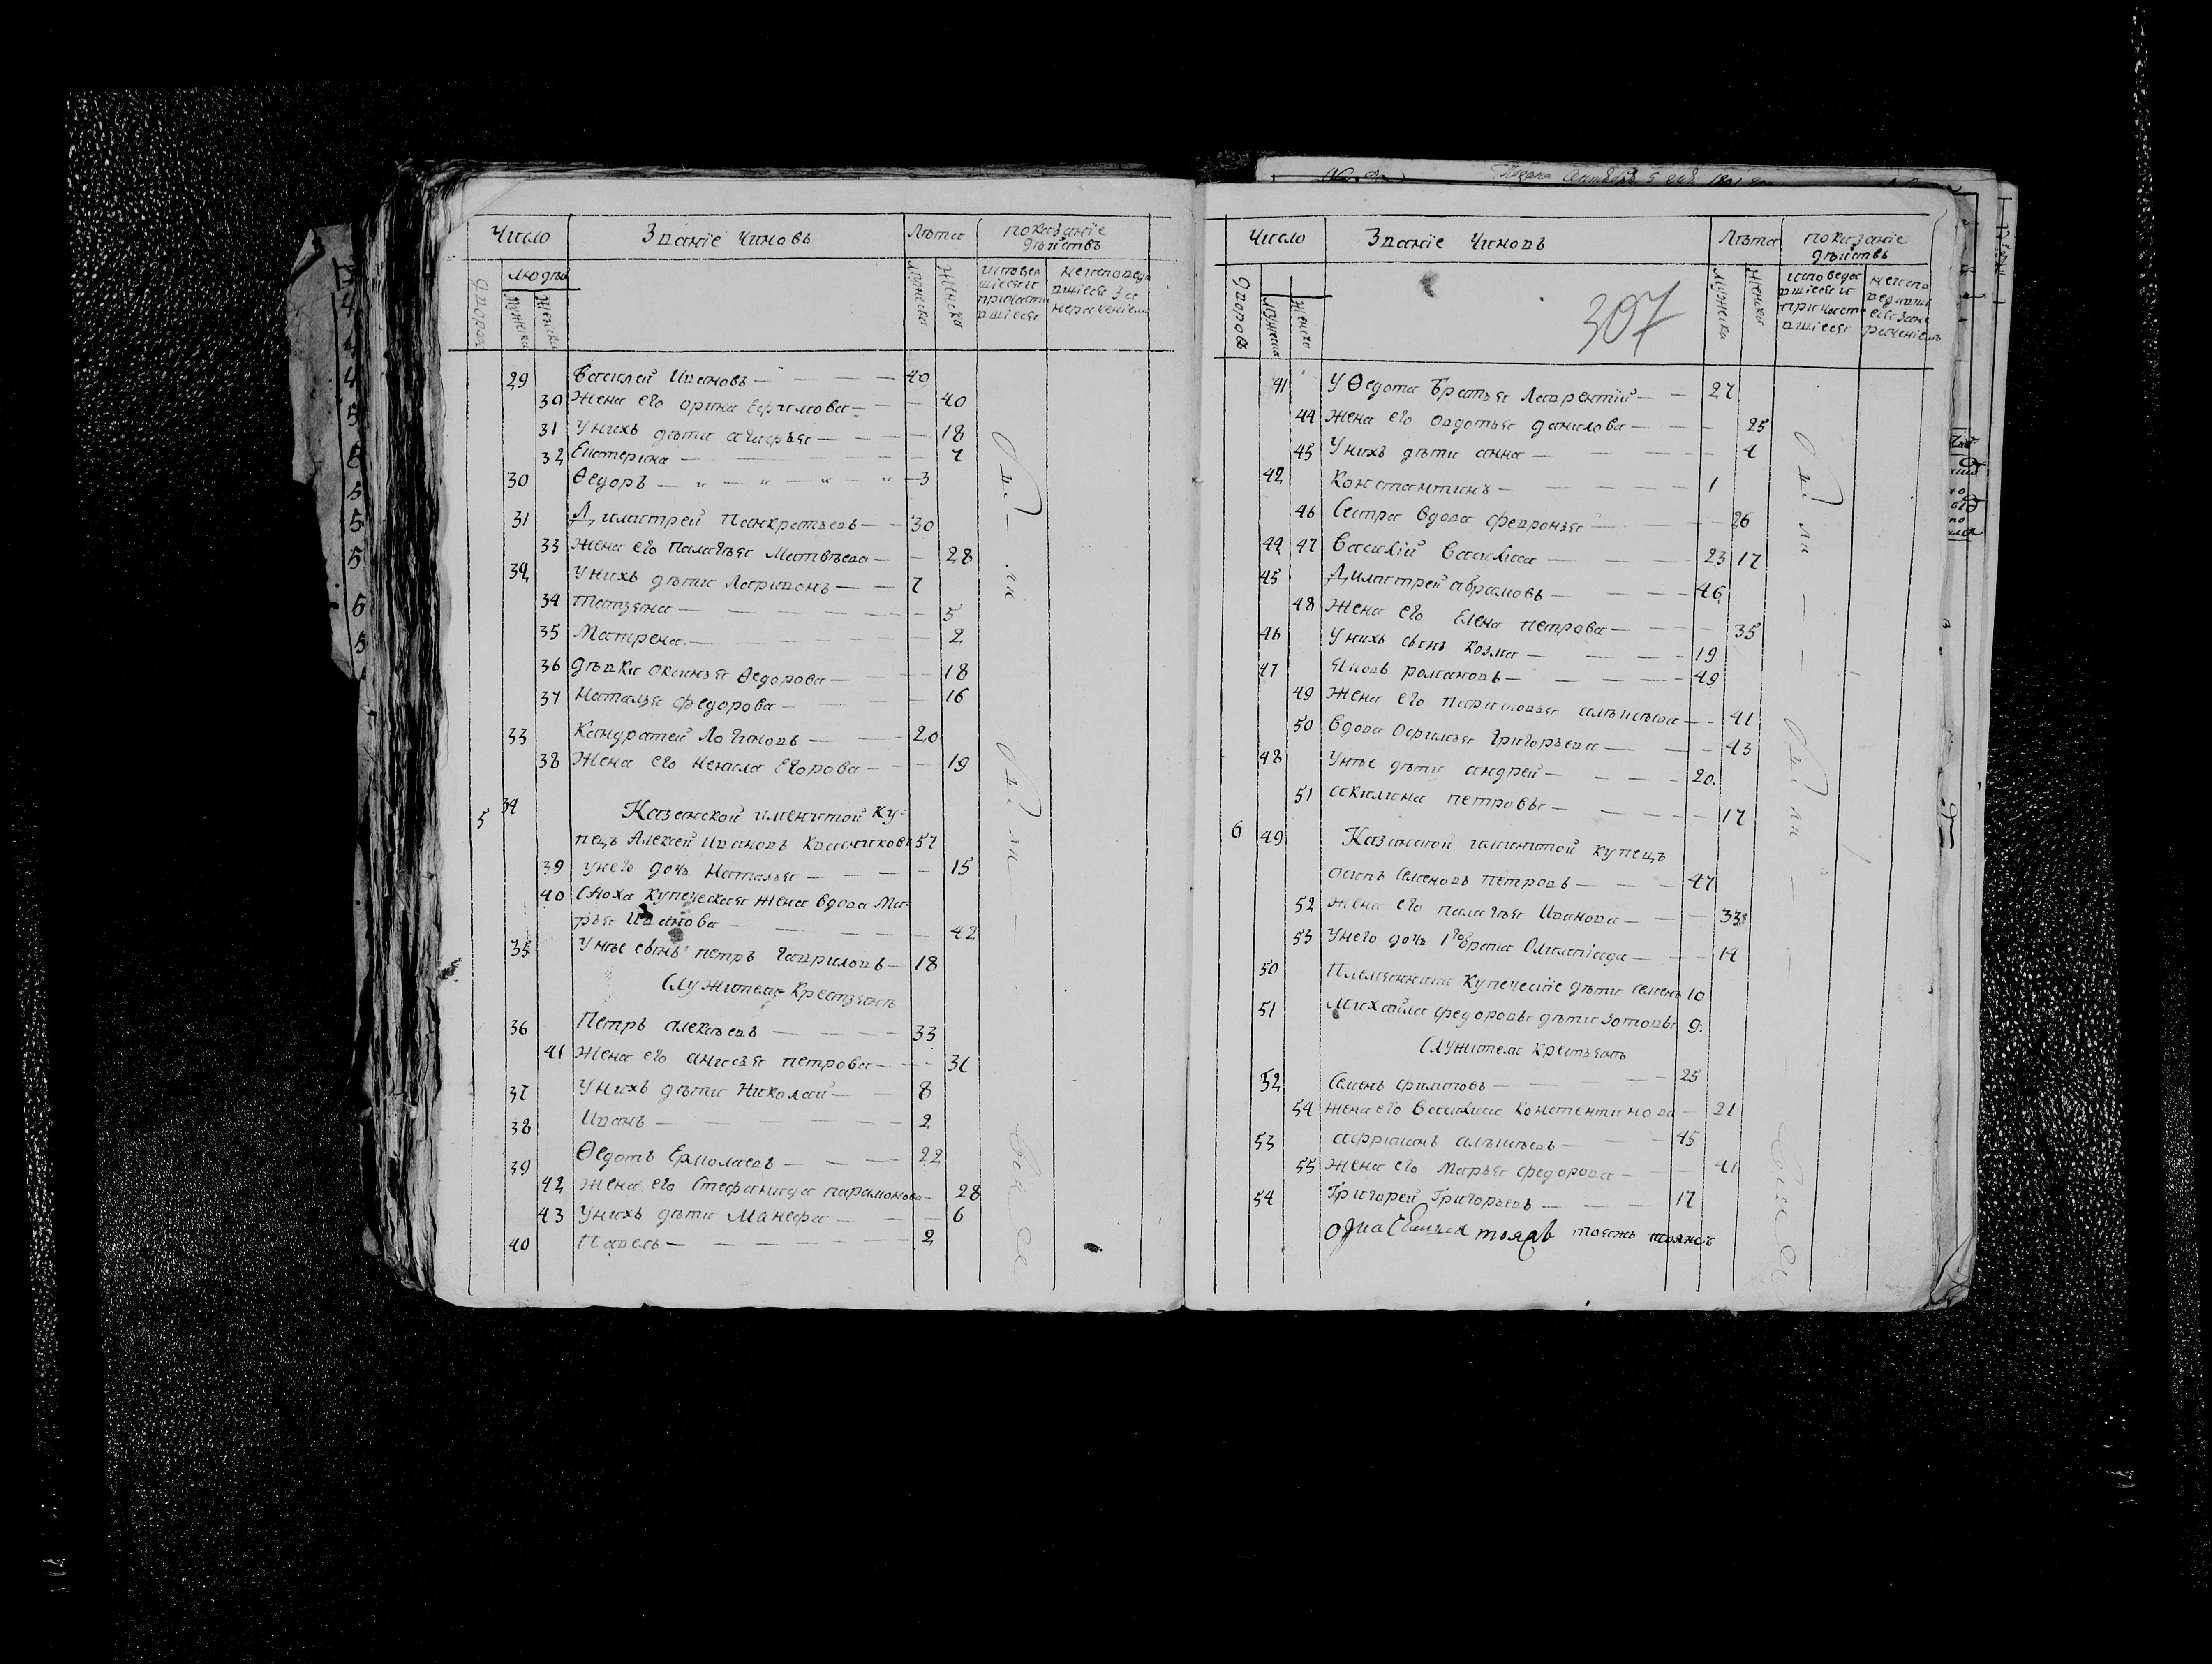 Число Званіе чиновъ Лѣта показаніе дѣйствъ
дворов людей
мужеска женска мужеска женска исповедавшіеся и причастившіеся неисповедавшіеся за нерачениемъ
29 Василей Ивановъ — 40
30 Жена его орина Ефимова — 40
31 Унихъ дѣти агафья — 18
32 Екатерина — 7
30 Ѳедоръ — 3
31 Димитрей Панкратьевъ — 30
33 Жена его палагѣя Матвѣева — 28
32 Унихъ дѣти Ларивонъ — 7
34 татьяна — 5
35 Матрена — 2
36 дѣвки оксинья Ѳедорова — 18
37 Наталья федорова — 16
33 Кандратей Логиновъ — 20
38 Жена его ненила Егорова — 19
5 34 Казанской именитой ку-
пецъ Алексей Ивановъ Квасниковъ 57
39 унего дочь Наталья — 15
40 Сноха купеческая жена вдова Ма-
рья Иванова — 42
35 Унѣе сынъ петръ Гавриловъ — 18
Служители крестьянъ
36 Петръ алексѣевъ — 33
41 Жена его анисья петрова — 31
37 Унихъ дѣти Николай — 8
38 Иванъ — 2
39 Ѳедотъ Ермолаевъ — 22
42 жена его Стефанида парамонова — 28
43 Унихъ дѣти Манефа — 6
40 Павелъ — 2
были
были
все
Число Званіе чиновъ Лѣта показаніе дѣйствъ
307
дворовъ мужеска женска мужеска женска исповедавшіеся и причаставшіеся неисповедавшиеся за нерачениемъ
41 У Ѳедота братья Лаврентій — 27
44 жена его овдотья данилова — 25
45 Унихъ дѣти анна — 4
42 Константинъ — 1
46 Сестра вдова февронья — 26
44 47 Василій Василиса — 23 17
45 Димитрей аврамовъ — 46
48 Жена его Елена петрова — 35
46 Унихъ сынъ козма — 19
47 Яковъ романовъ — 49
49 Жена его парасковья алѣксѣева — 41
50 вдова Офимья григорьева — 43
48 Унѣе дѣти андрей — 20
51 акилина петровы — 17
6 49 Казанской именитой купецъ
осипъ Семеновъ петровъ — 47
52 жена его палагѣя Иванова — 33
53 Унего дочь 1го брака Олимпіада — 14
50 Племянники купеческіе дѣти семенъ 10
51 михайла федоровы дѣти зотовы 9
Служители крестьянъ
52 Семенъ филиповъ — 25
54 жена его Василиса Константинова — 21
53 африанъ алѣксѣевъ — 45
55 Жена его марья федорова — 41
54 Григорей Григорьевъ — 17
были
были
все